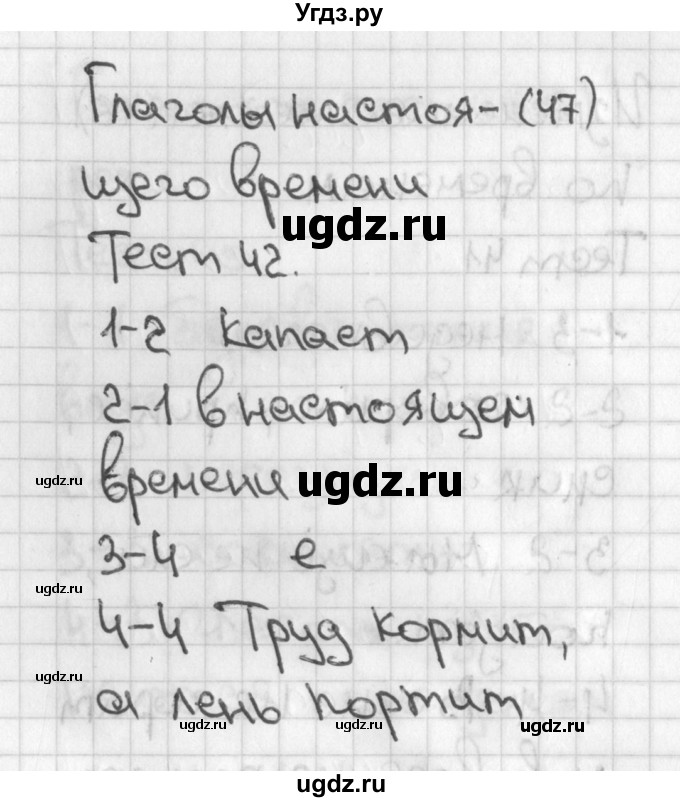 Угдз.ру
Глаголы настоя- (47)
щего времени
ugdz.ru
Тест 42.
1-2 капает
2-1 в настоящем
ugdz.ru
времени
ugdz.ru
3-4 е
ugdz.ru
4-4 Труд кормит,
ugdz.ru
а лень портит
ugdz.ru
ugdz.ru
ugdz.ru
ugdz.ru